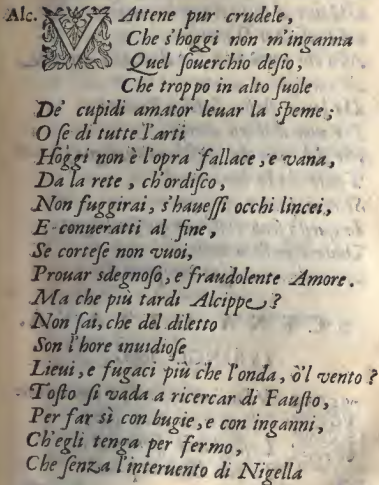 Alc. VAttene pur crudele,
Che s'hoggi non m'inganna
Quel ſouerchio deſio,
Che troppo in alto ſuole
De' cupidi amator leuar la ſpeme;
O ſe di tutte l'arti
Hoggi non è l'opra fallace, e vana,
Da la rete, ch'ordiſco,
Non fuggirai, s'haueſſi occhi lincei,
E conueratti al fine,
Se corteſe non vuoi,
Prouar sdegnoſo, e fraudolente Amore.
Ma che più tardi Alcippe?
Non ſai, che del diletto
Son l'hore inuidioſe
Lieui, e fugaci più che l'onda, ò'l vento?
Toſto ſi vada a ricercar di Fauſto,
Per far sì con bugie, e con inganni,
Ch'egli tenga per fermo,
Che ſenza l'interuento di Nigella